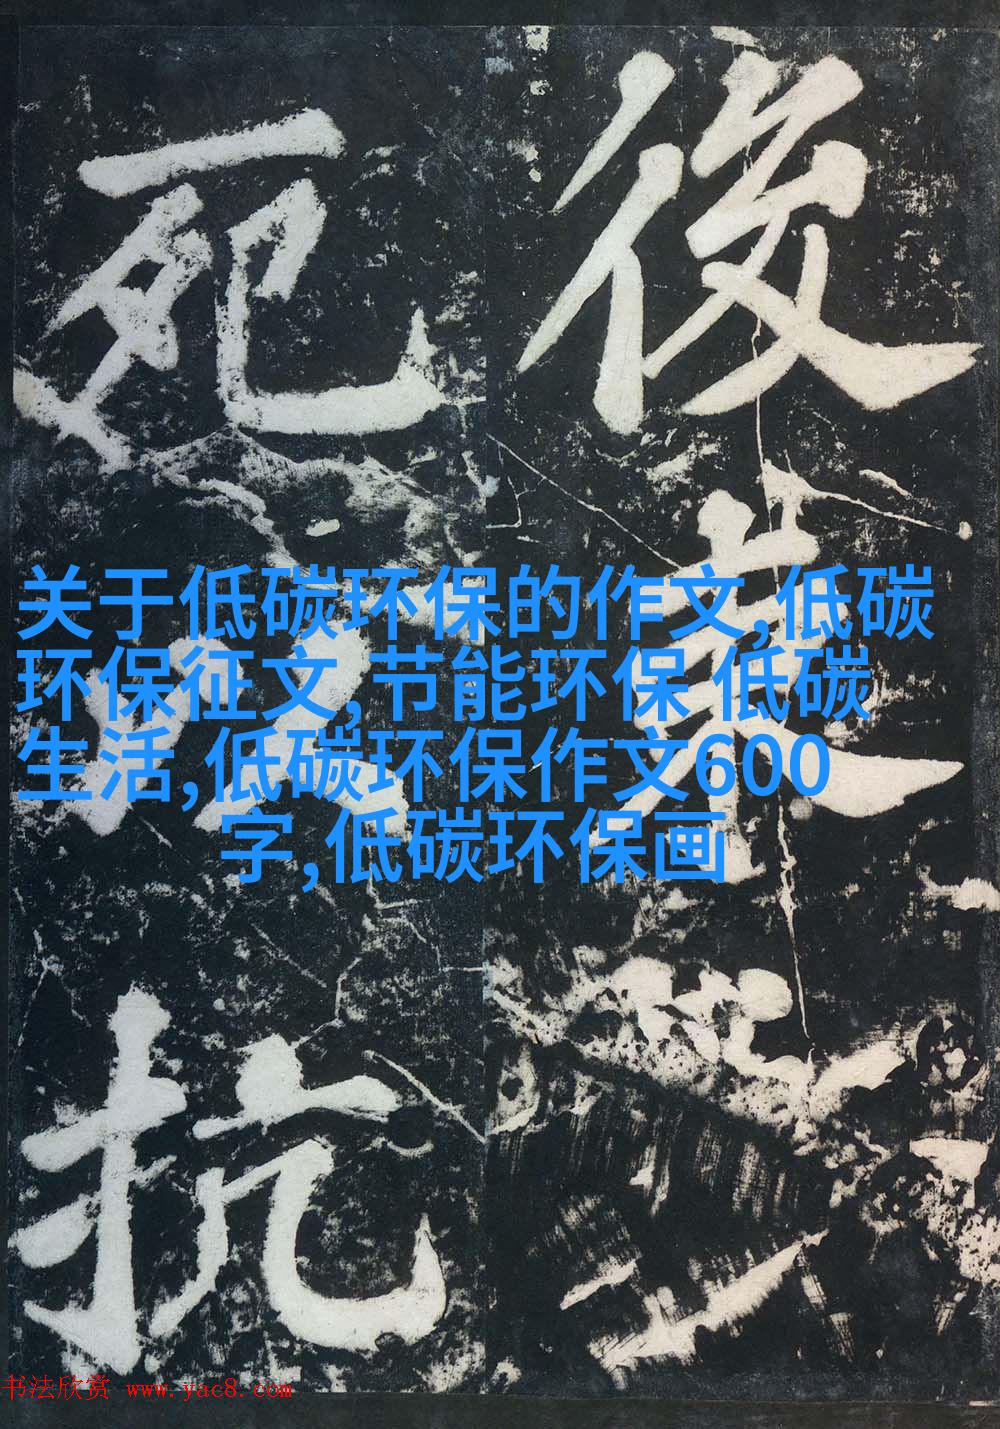 後
死
关于低碳环保的作文,低碳
环保征文,节能环保 低碳
生活,低碳环保作文600
字,低碳环保画
抗
书法欣赏 www.yac8.com